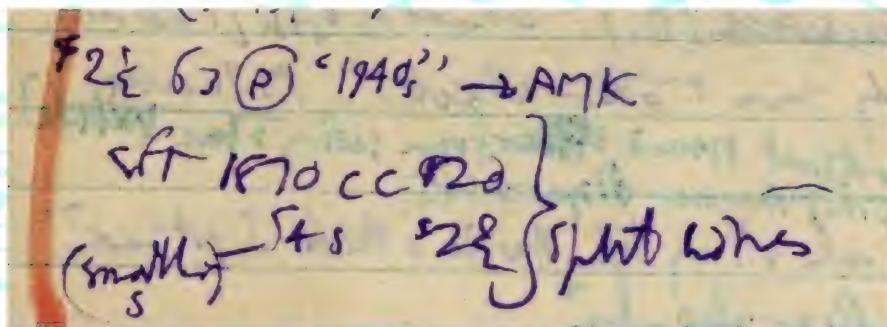 $2½ 63 (P) "1940s" → AMK
sft 1870 CC $20
(small s) 54s $2½ } split wires